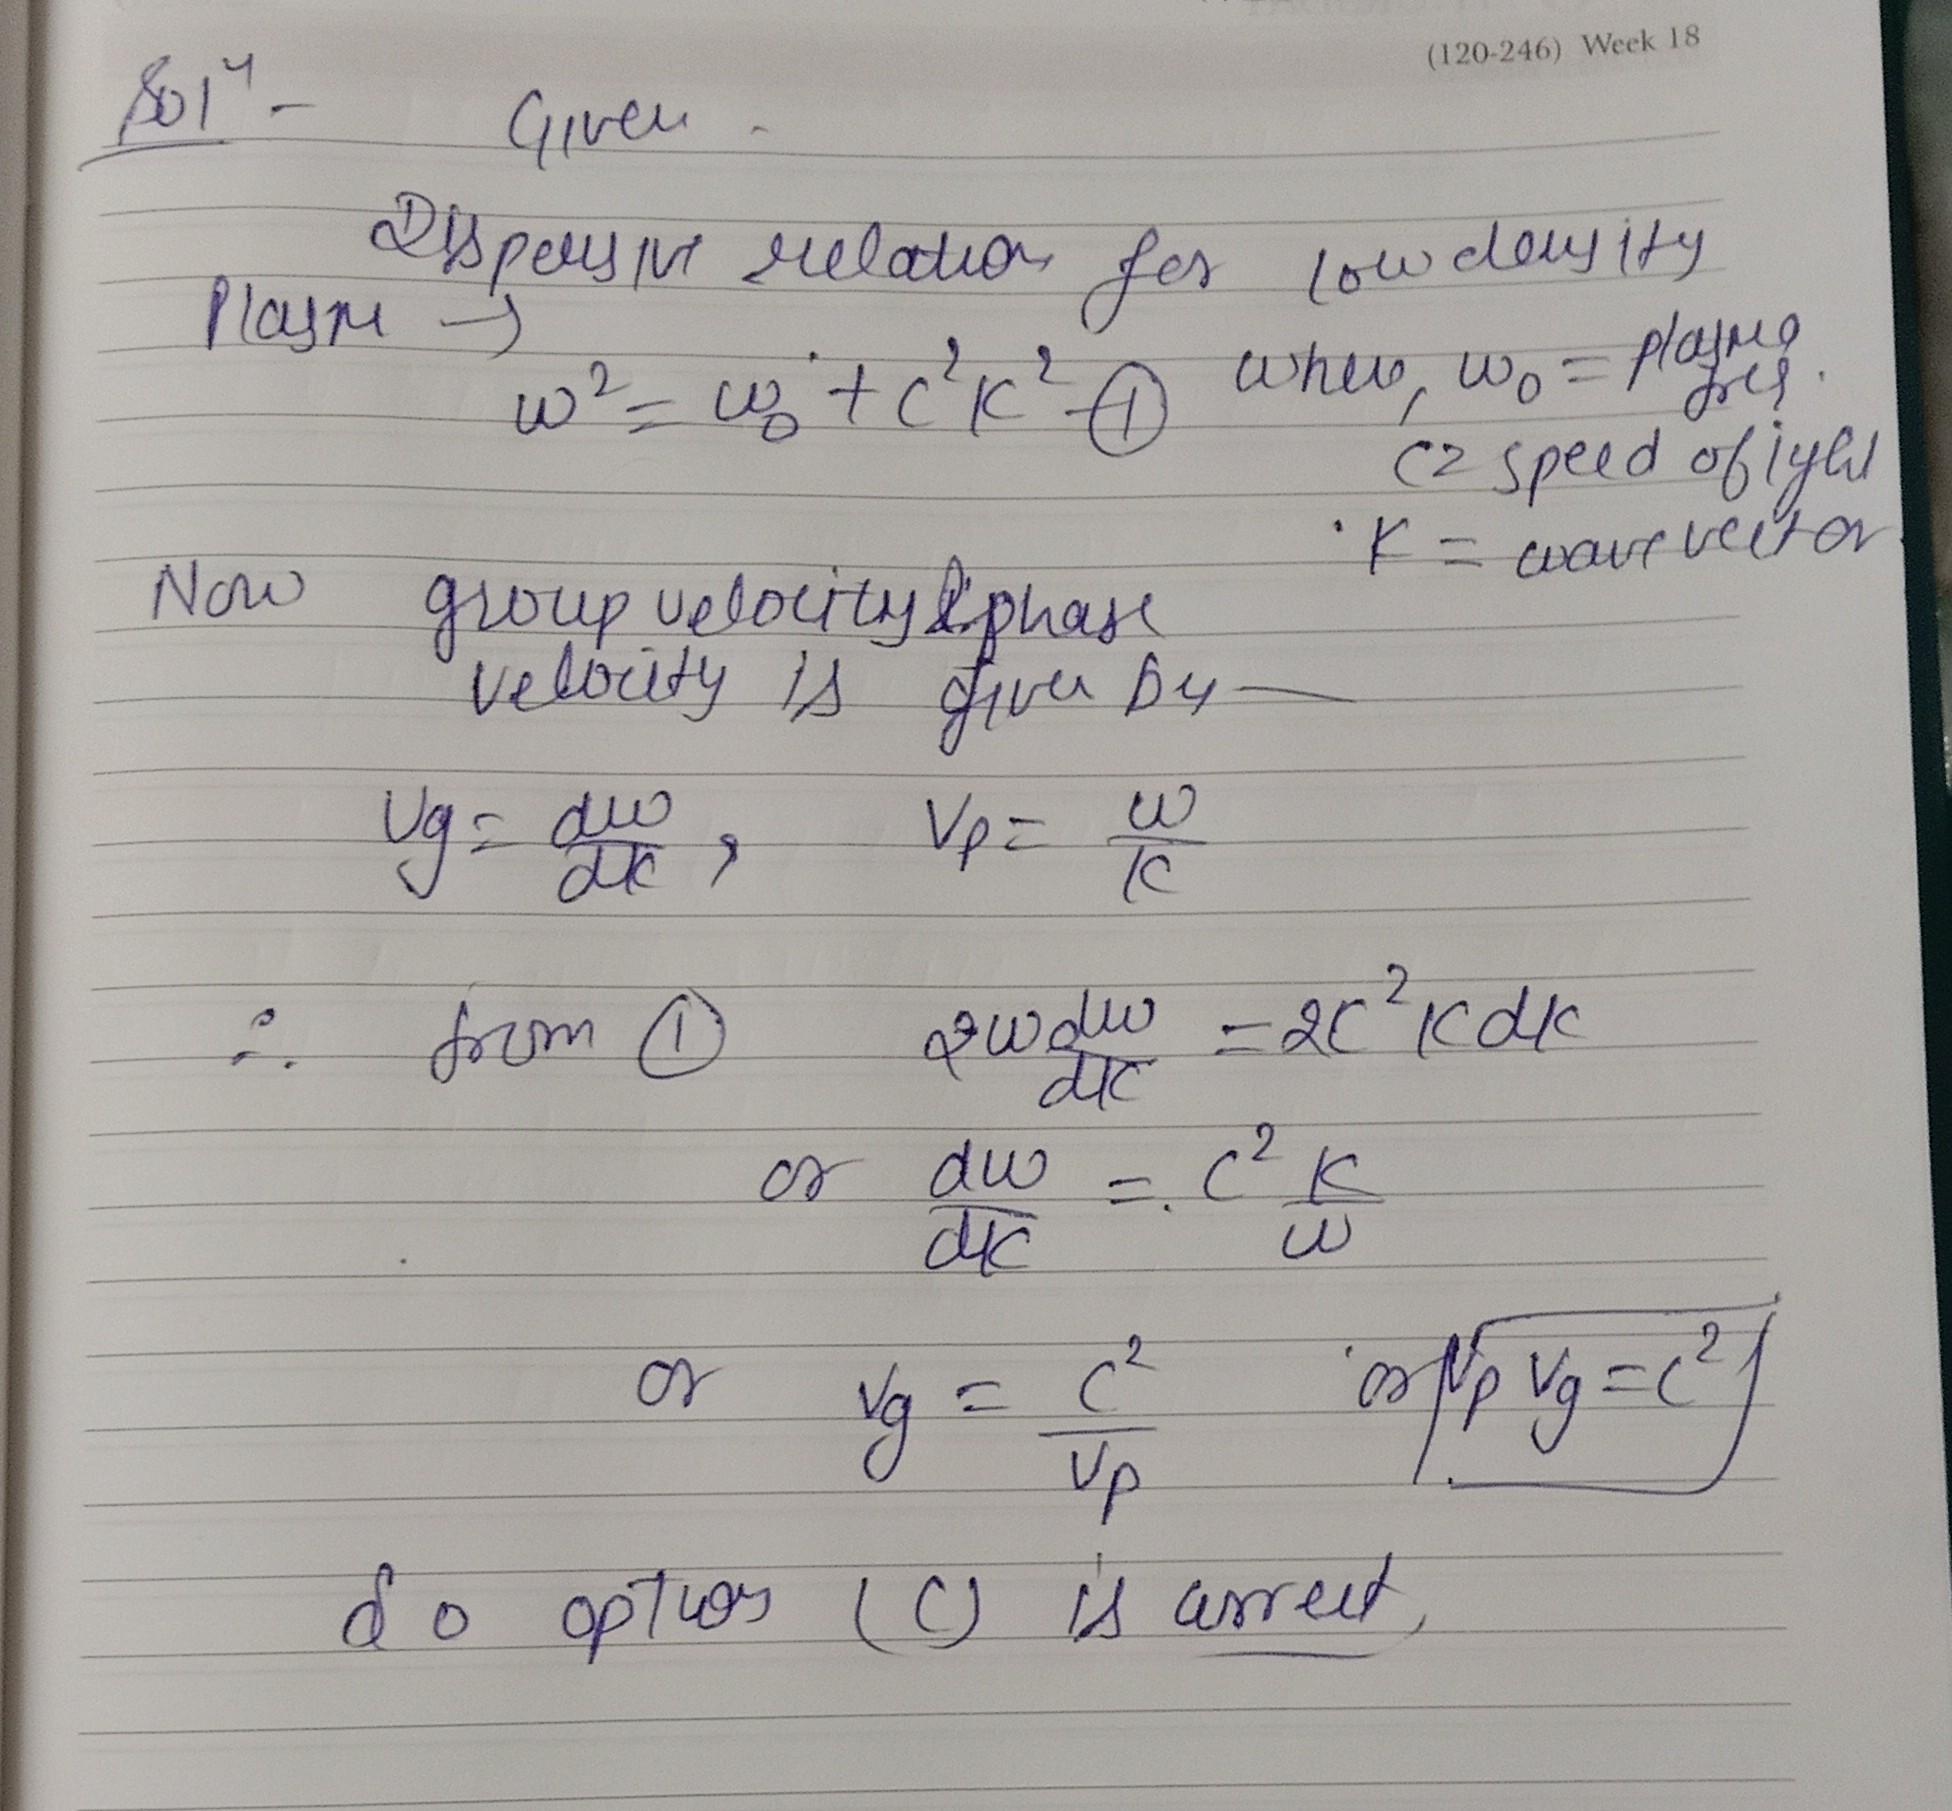 (120-246) Week 18
Solⁿ - Given -
Dispersive relation for low density
Plasma →
ω² = ω₀² + c²k² - ① where, ω₀ = plasma freq.
c = speed of light
k = wave vector
Now group velocity & phase
velocity is given by —
Vg = dω/dk , Vp = ω/k
∴ from ① 2ω dω/dk = 2c²k dk
or dω/dk = c² k/ω
or Vg = c²/Vp or Vp Vg = c²
So option (C) is correct,